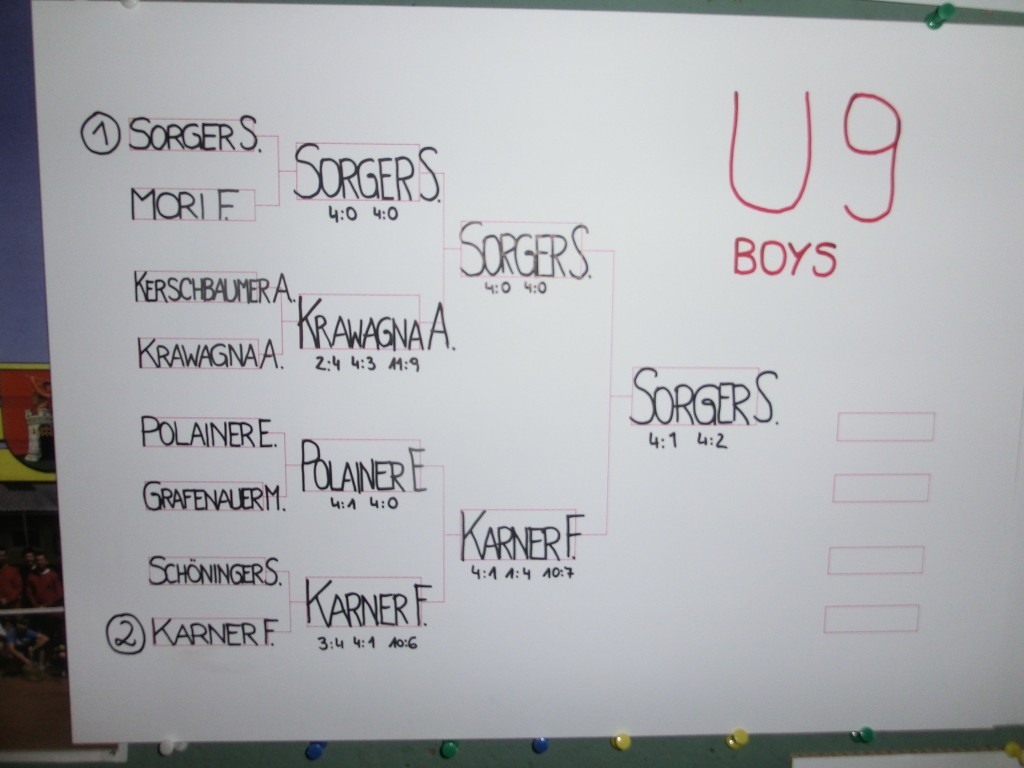 U9
BOYS
1 SORGER S.
MORI F.
KERSCHBAUMER A.
KRAWAGNA A.
POLAINER E.
GRAFENAUER M.
SCHÖNINGER S.
2 KARNER F.
SORGER S.
4:0 4:0
KRAWAGNA A.
2:4 4:3 11:9
POLAINER E
4:1 4:0
KARNER F.
3:4 4:1 10:6
SORGER S.
4:0 4:0
KARNER F.
4:1 1:4 10:7
SORGER S.
4:1 4:2